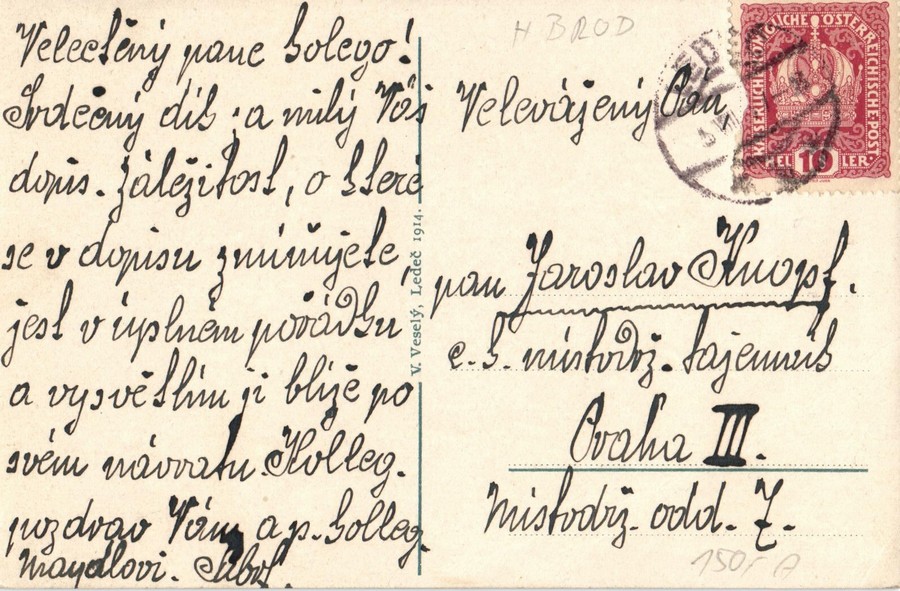 Velectěný pane kolego!
Srdečný dík za milý Váš
dopis. Záležitost, o které
se v dopisu zmiňujete,
jest v úplném pořádku
a vysvětlím ji blíže po
svém návratu. Kolleg.
pozdrav Vám a p. kolleg.
V. Veselý, Ledeč 1914.
H BROD
KAISERLICHE KÖNIGLICHE ÖSTERREICHISCHE POST
HEL 10 LER
Velevážený Pán
pan Jaroslav Knopf.
c. k. místodrž. tajemník
Praha III.
Místodrž. odd. 7.
150,-